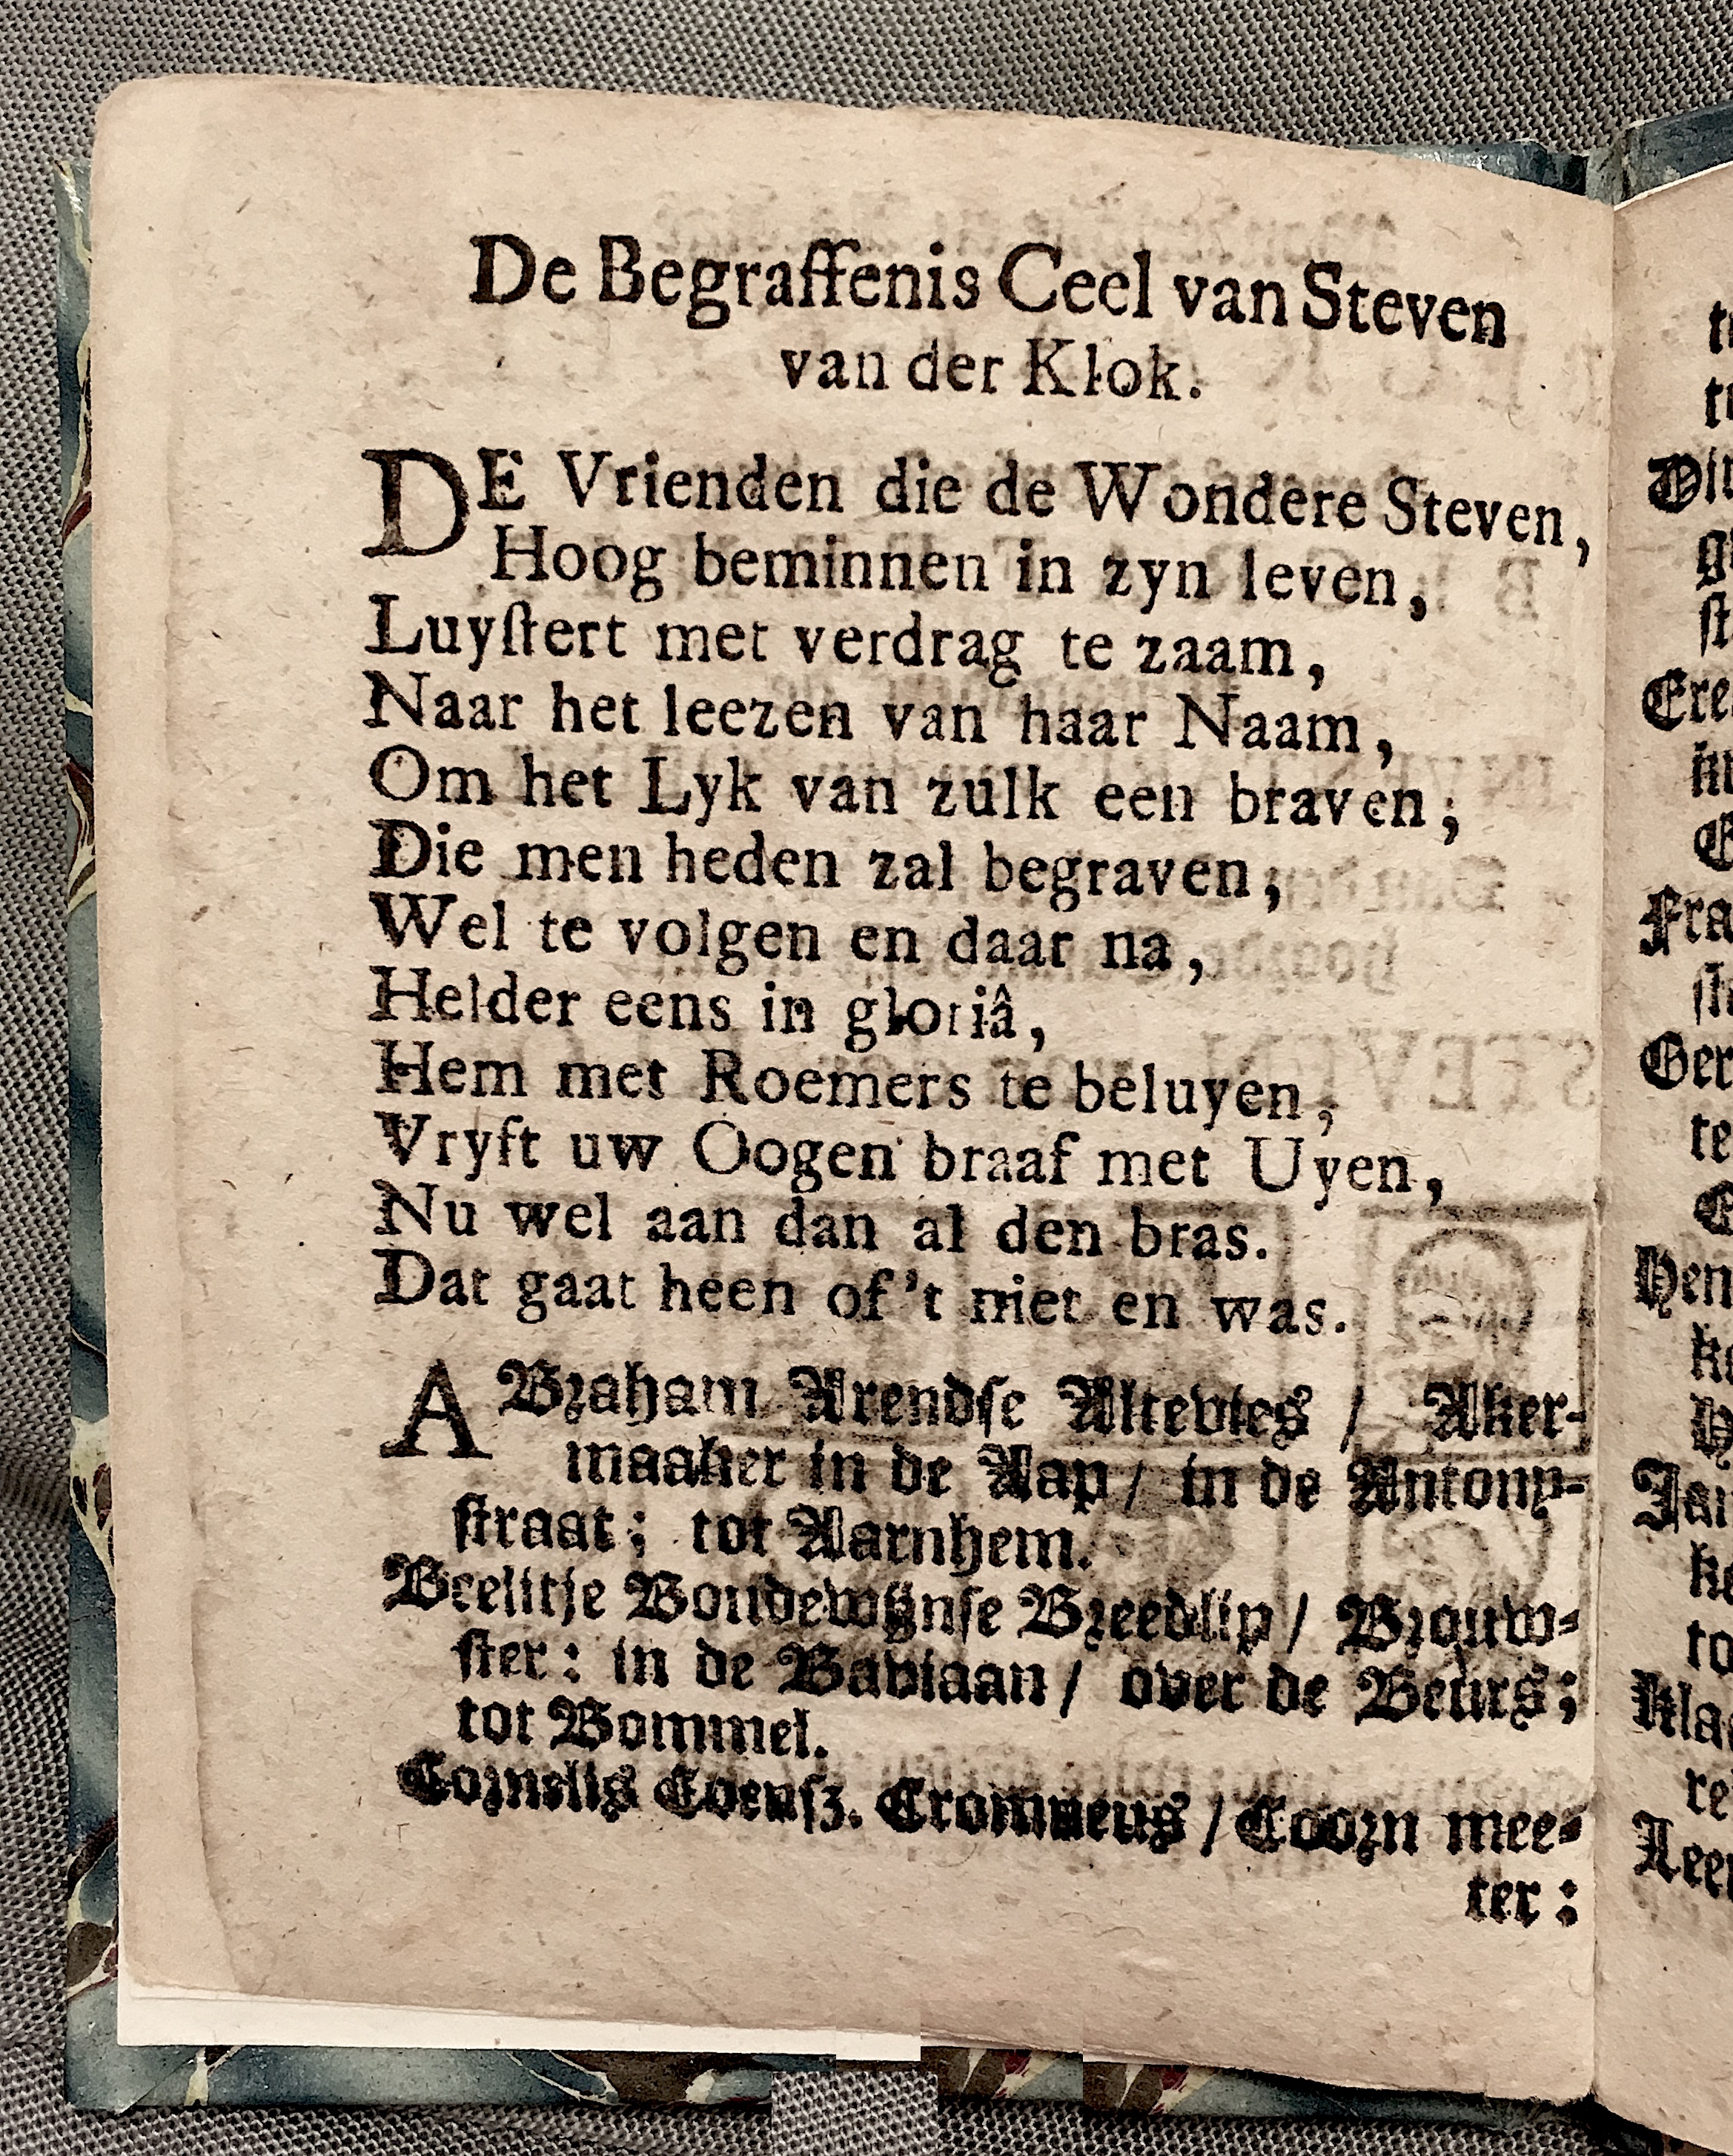 De Begraffenis Ceel van Steven
van der Klok.
DE Vrienden die de Wondere Steven,
Hoog beminnen in zyn leven,
Luyſtert met verdrag te zaam,
Naar het leezen van haar Naam,
Om het Lyk van zulk een braven;
Die men heden zal begraven,
Wel te volgen en daar na,
Helder eens in gloriâ,
Hem met Roemers te beluyen,
Vryft uw Oogen braaf met Uyen,
Nu wel aan dan al den bras.
Dat gaat heen of 't niet en was.
ABraham Arendſe Altevies / Aker-
maaker in de Aap / in de Antony-
ſtraat; tot Aarnhem.
Beelitje Boudewijnſe Breedlip / Brouw-
ſter: in de Baviaan / over de Beurs;
tot Bommel.
Cornelis Coenſz. Cromneus / Coorn mee-
ter: